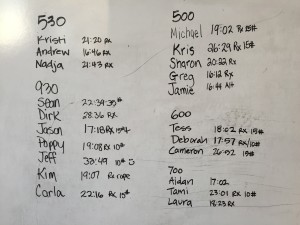 530
Kristi 21:20 Rx
Andrew 16:46 Rx
Nadja 21:43 Rx
930
Sean 22:39 35#
Dirk 28:36 Rx
Jason 17:18 Rx 15#
Poppy 19:08 Rx 10#
Jeff 30:49 10#
Kim 19:07 Rx rope
Carla 22:16 Rx 15#
500
Michael 19:02 Rx 25#
Kris 26:29 Rx 15#
Sharon 20:22 Rx
Greg 16:12 Rx
Jamie 16:44
600
Tess 18:02 Rx 15#
Deborah 17:57 Rx/10#
Cameron 26:52 15#
700
Aidan 17:02
Tami 23:01 Rx 10#
Laura 18:23 Rx